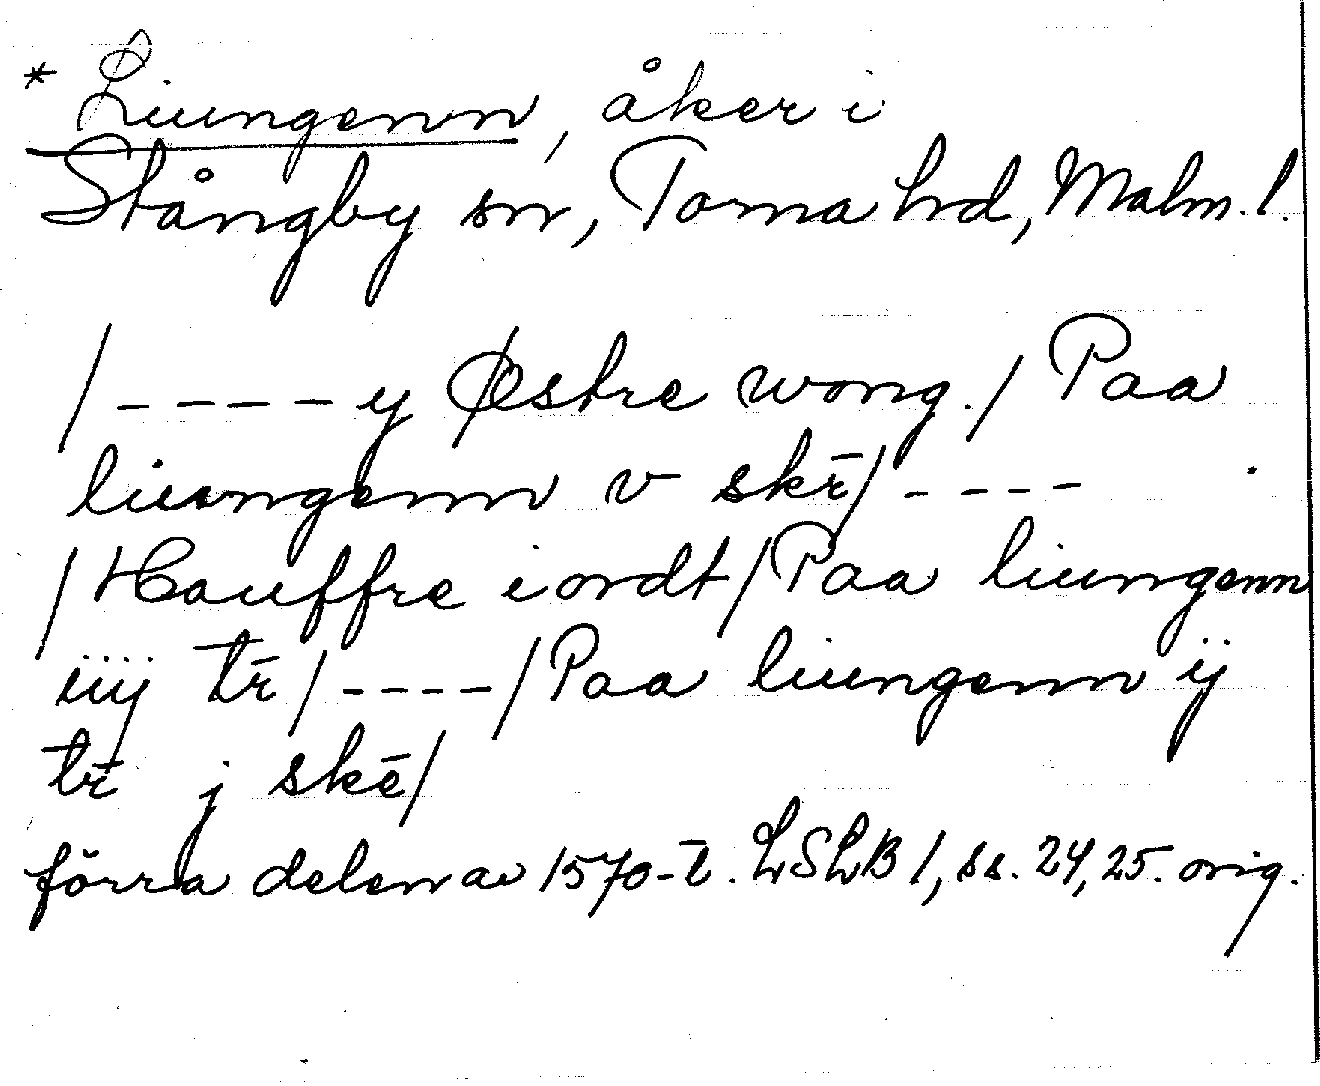 * Liungenn, åker i
Stångby sn, Torna hd, Malm. l.
/ - - - - y Østre wong. / Paa
liungenn v skē / - - - -
/ Hauffre iordt / Paa liungenn
iiij tr̄ / - - - - / Paa liungenn ij
tr̄ j skē /
förra delen av 1570-t. LSLB 1, ss. 24, 25. orig.